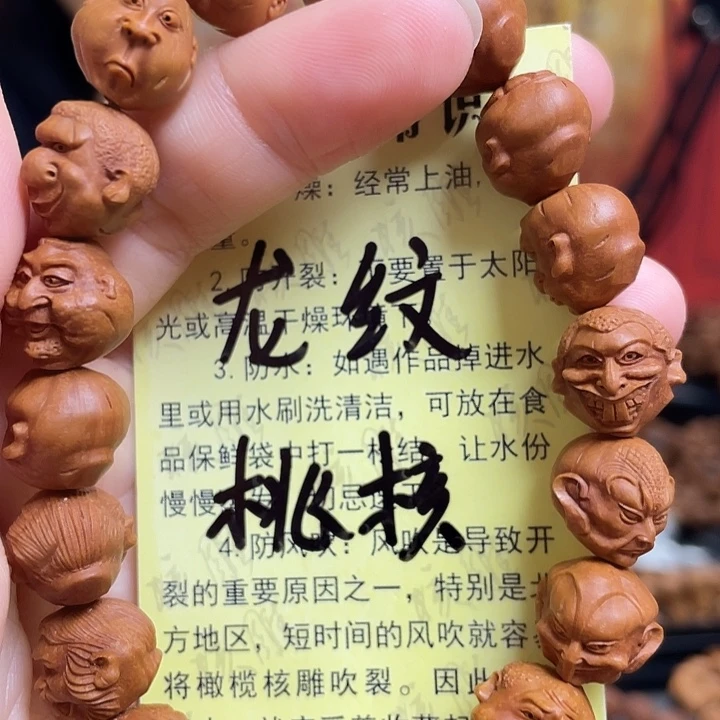 常识
燥：经常上油，
量。
2. 防开裂：不要置于太阳
光或高温干燥环境下
3. 防水：如遇作品掉进水
里或用水刷洗清洁，可放在食
品保鲜袋中打一个结，让水份
慢慢
4. 防风吹：风吹是导致开
裂的重要原因之一，特别是北
方地区，短时间的风吹就容易
将橄榄核雕吹裂。因此
龙纹
桃核